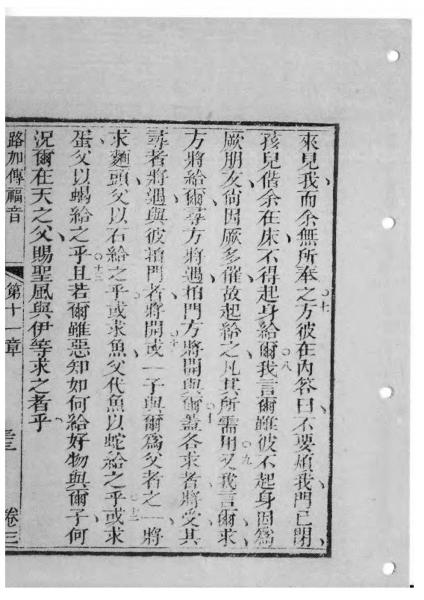 來見我而余無所奉之方彼在內答曰不要煩我門已閉
孩兒偕余在床不得起身給爾我言爾雖彼不起身因爲
厥朋友尚因厥多催故起給之凡其所需用又我言爾求
方將給爾尋方將遇拍門方將開與爾蓋各求者將受其
尋者將遇與彼拍門者將開或一子與爾爲父者之一將
求麵頭父以石給之乎或求魚父代魚以蛇給之乎或求
蛋父以蝎給之乎且若爾雖惡知如何給好物與爾子何
況爾在天之父賜聖風與伊等求之者乎
路加傳福音 第十一章 卷三